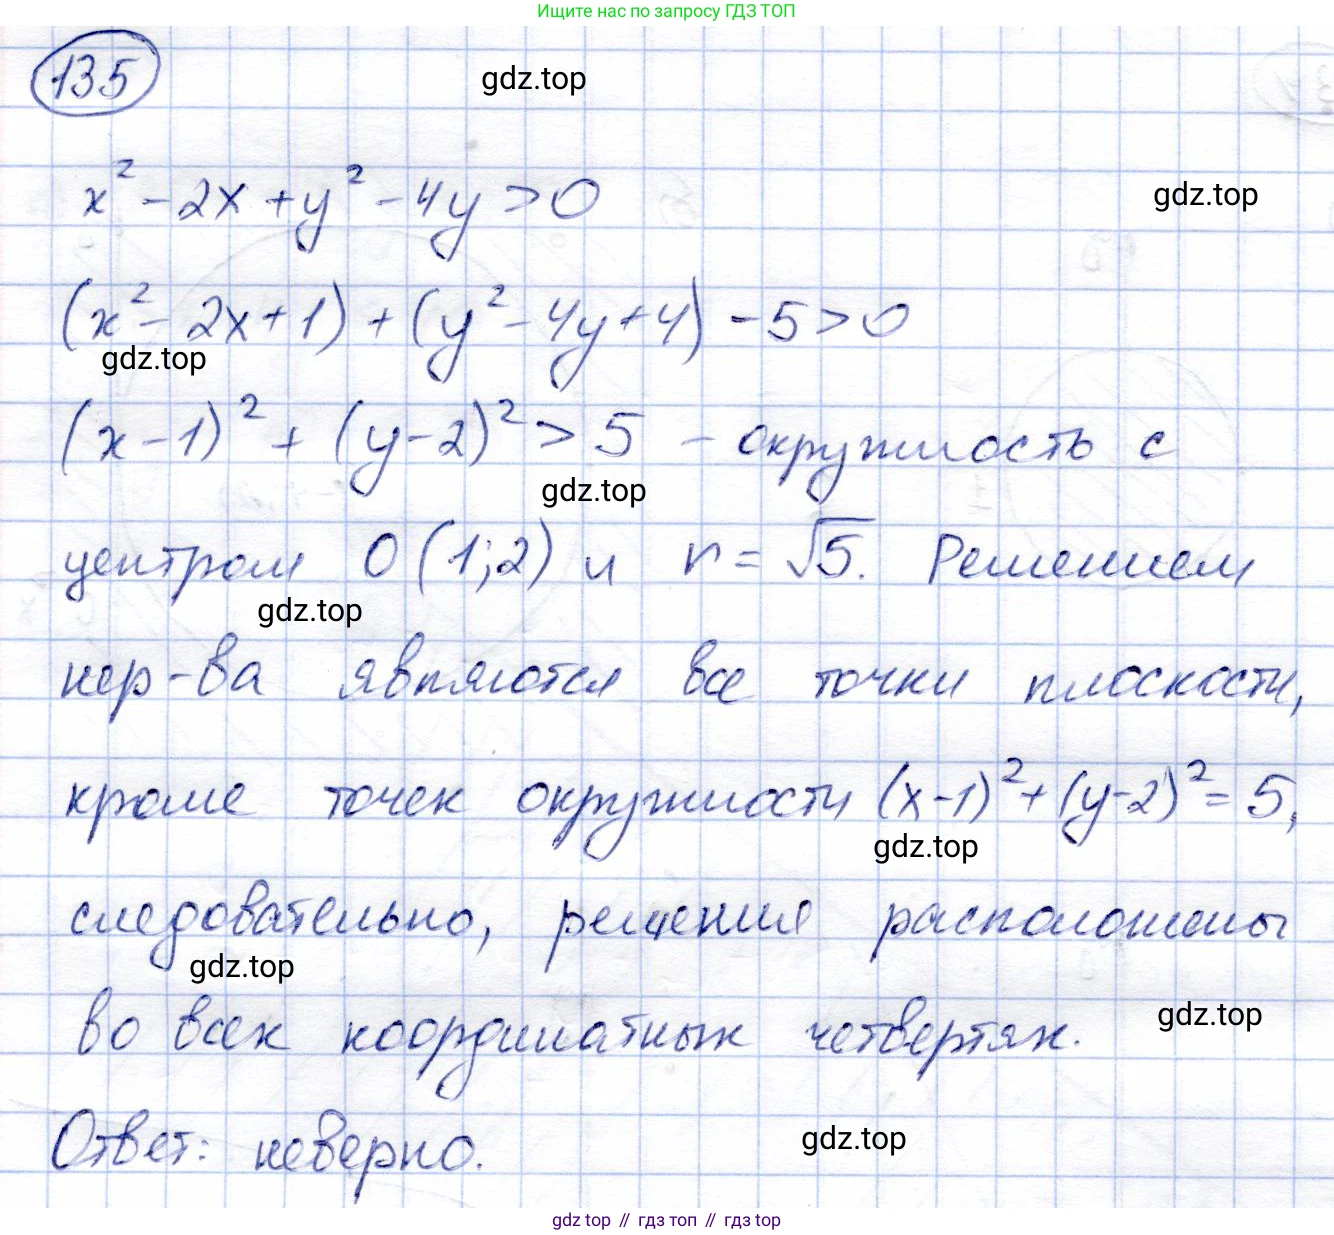 Ищите нас по запросу ГДЗ ТОП
135
gdz.top
x² - 2x + y² - 4y > 0
gdz.top
(x² - 2x + 1) + (y² - 4y + 4) - 5 > 0
gdz.top
(x - 1)² + (y - 2)² > 5 - окружность с
gdz.top
центром O (1; 2) и r = √5. Решением
gdz.top
нер-ва являются все точки плоскости,
кроме точек окружности (x-1)² + (y-2)² = 5,
gdz.top
следовательно, решения расположены
gdz.top
во всех координатных четвертях.
gdz.top
Ответ: неверно.
gdz.top
gdz top // гдз топ // гдз top